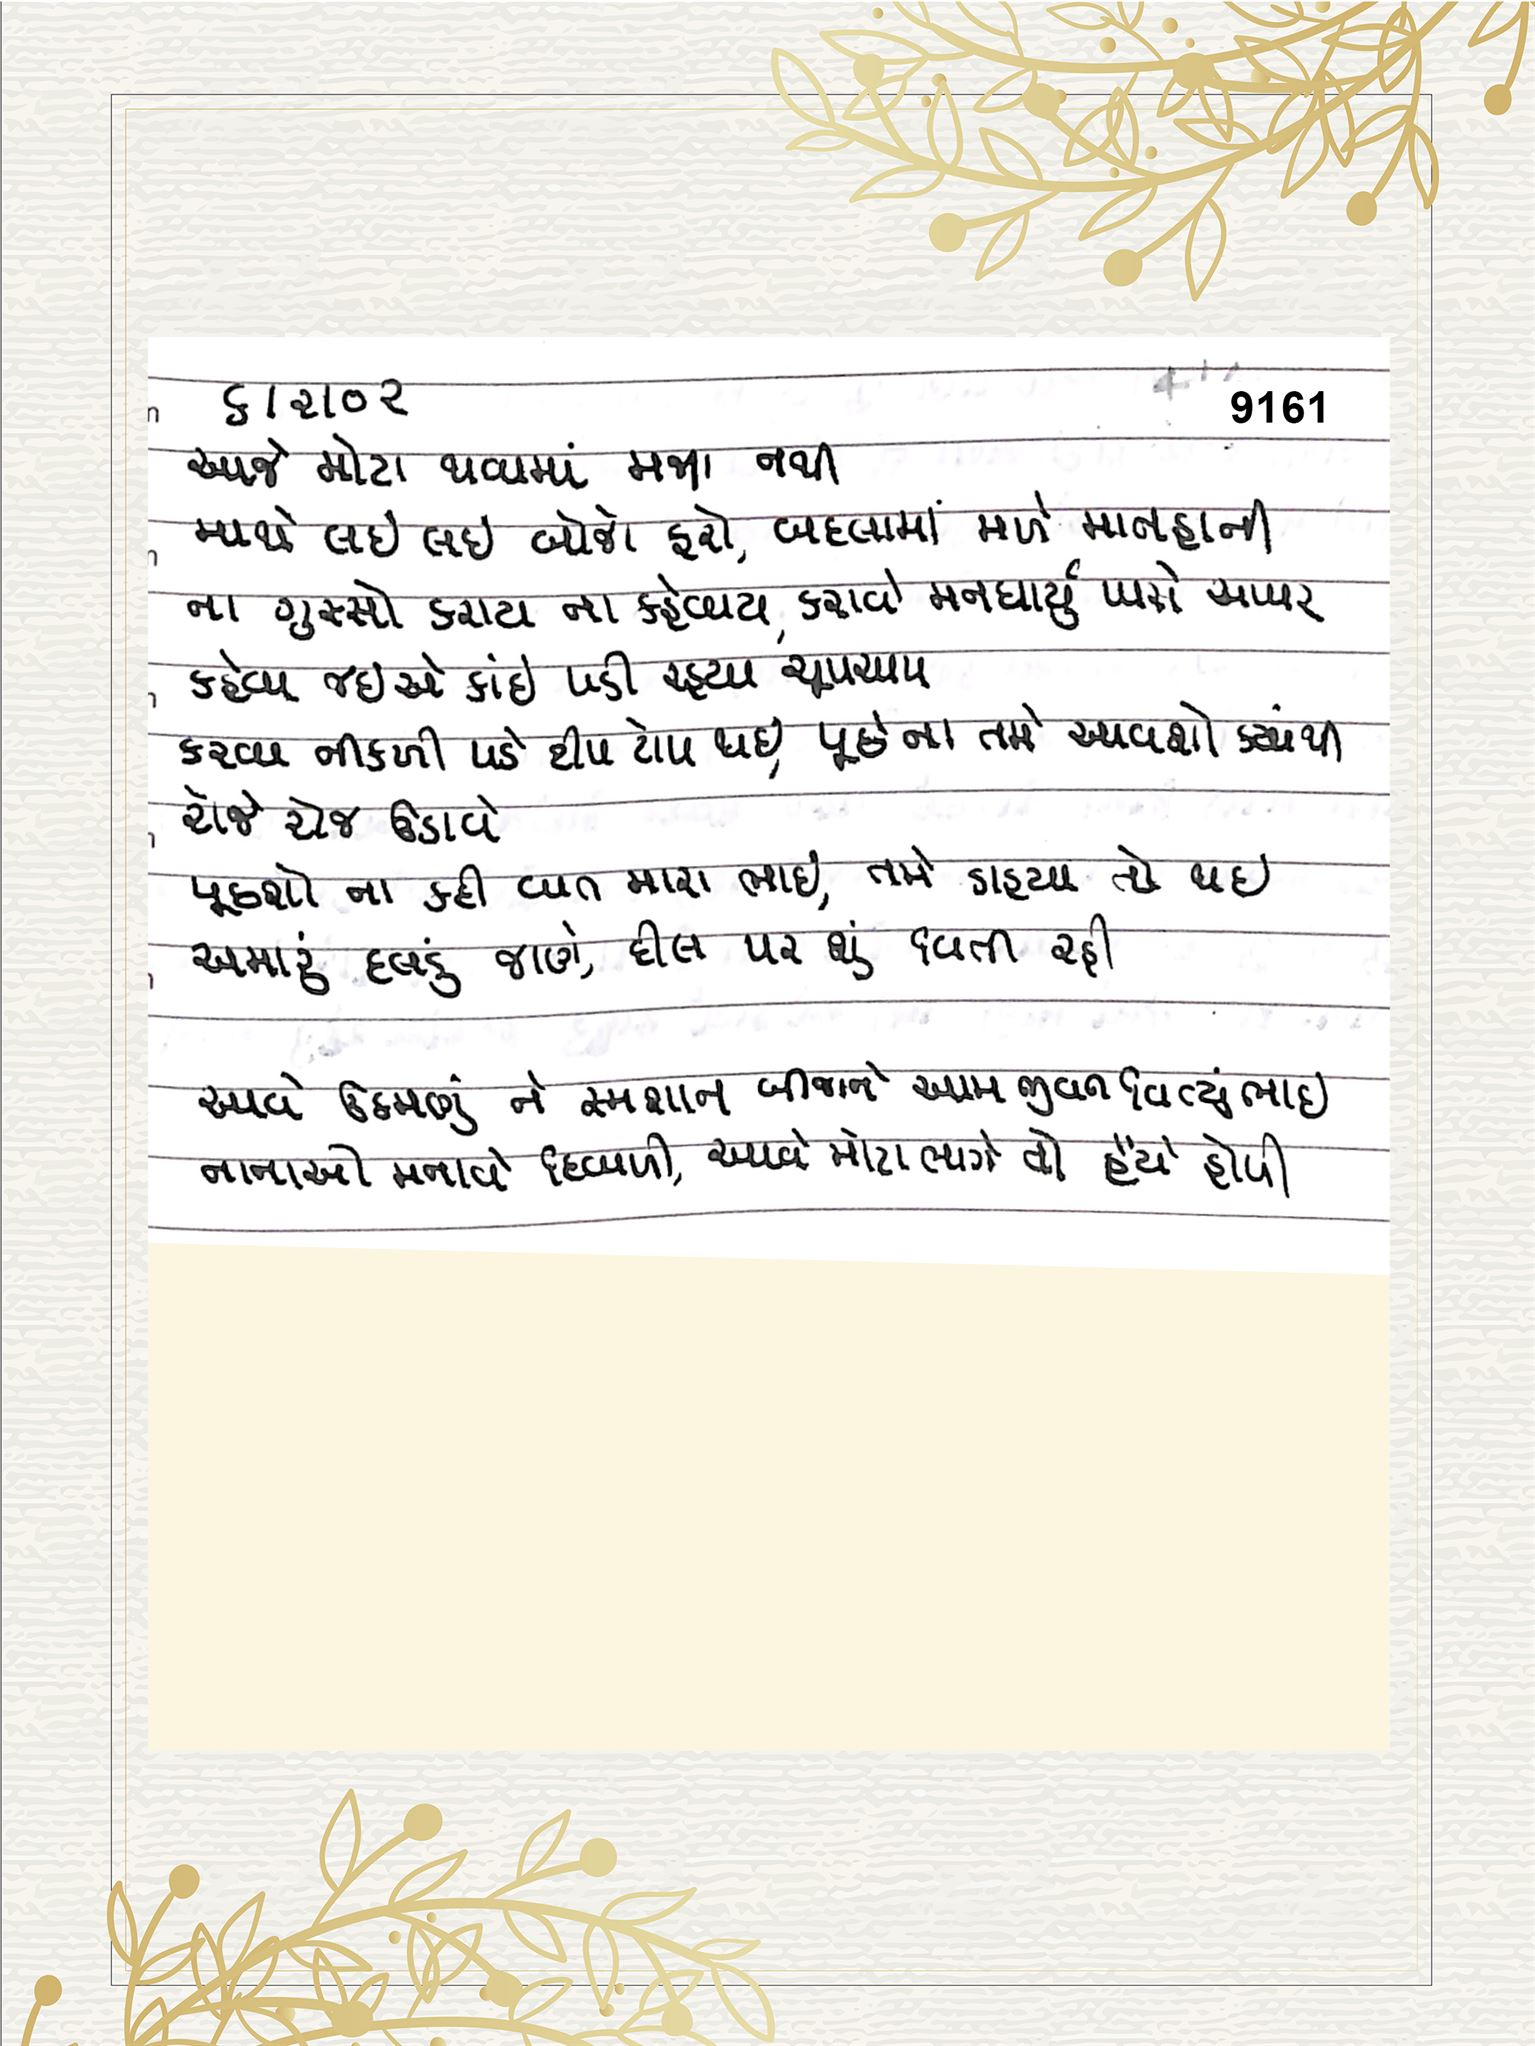 ૬/૨/૦૨
9161
આજે મોટા થવામાં મજા નથી
માથે લઈ લઈ બોજો ફરો, બદલામાં મળે માનહાની
ના ગુસ્સો કરાય ના કહેવાય, કરાવે મનધાર્યું પાસે આપર
કહેવા જઈએ કાંઈ પડી રહ્યા ચૂપચાપ
કરવા નીકળી પડે ટીપ ટોપ થઈ, પૂછે ના તમે આવશો ક્યાંથી
રોજે રોજ ઉડાવે
પૂછશો ના કહી વાત મારા ભાઈ, તમે ડાહ્યા તો થઈ
અમારું હલડું જાણે, દીલ પર શું વિતી રહી
આવે ઉઠમણું ને સ્મશાન બીજાને આમ જીવન વિત્યું ભાઈ
નાનાઓ મનાવે દિવાળી, આવે મોટા ભાગે તો હૈયે હોળી